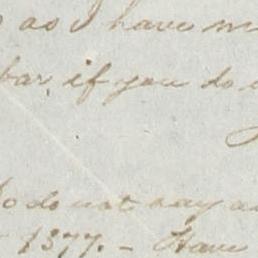 as I have
bar, if you do
do not say
1877. - Have